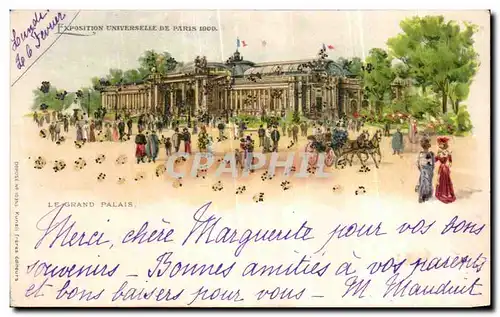 Lundi
le 6 Février
EXPOSITION UNIVERSELLE DE PARIS 1900.
CPARAMA
LE GRAND PALAIS.
Merci, chère Marguerite pour vos bons
souvenirs – Bonnes amitiés à vos parents
et bons baisers pour vous – M. Mauduit